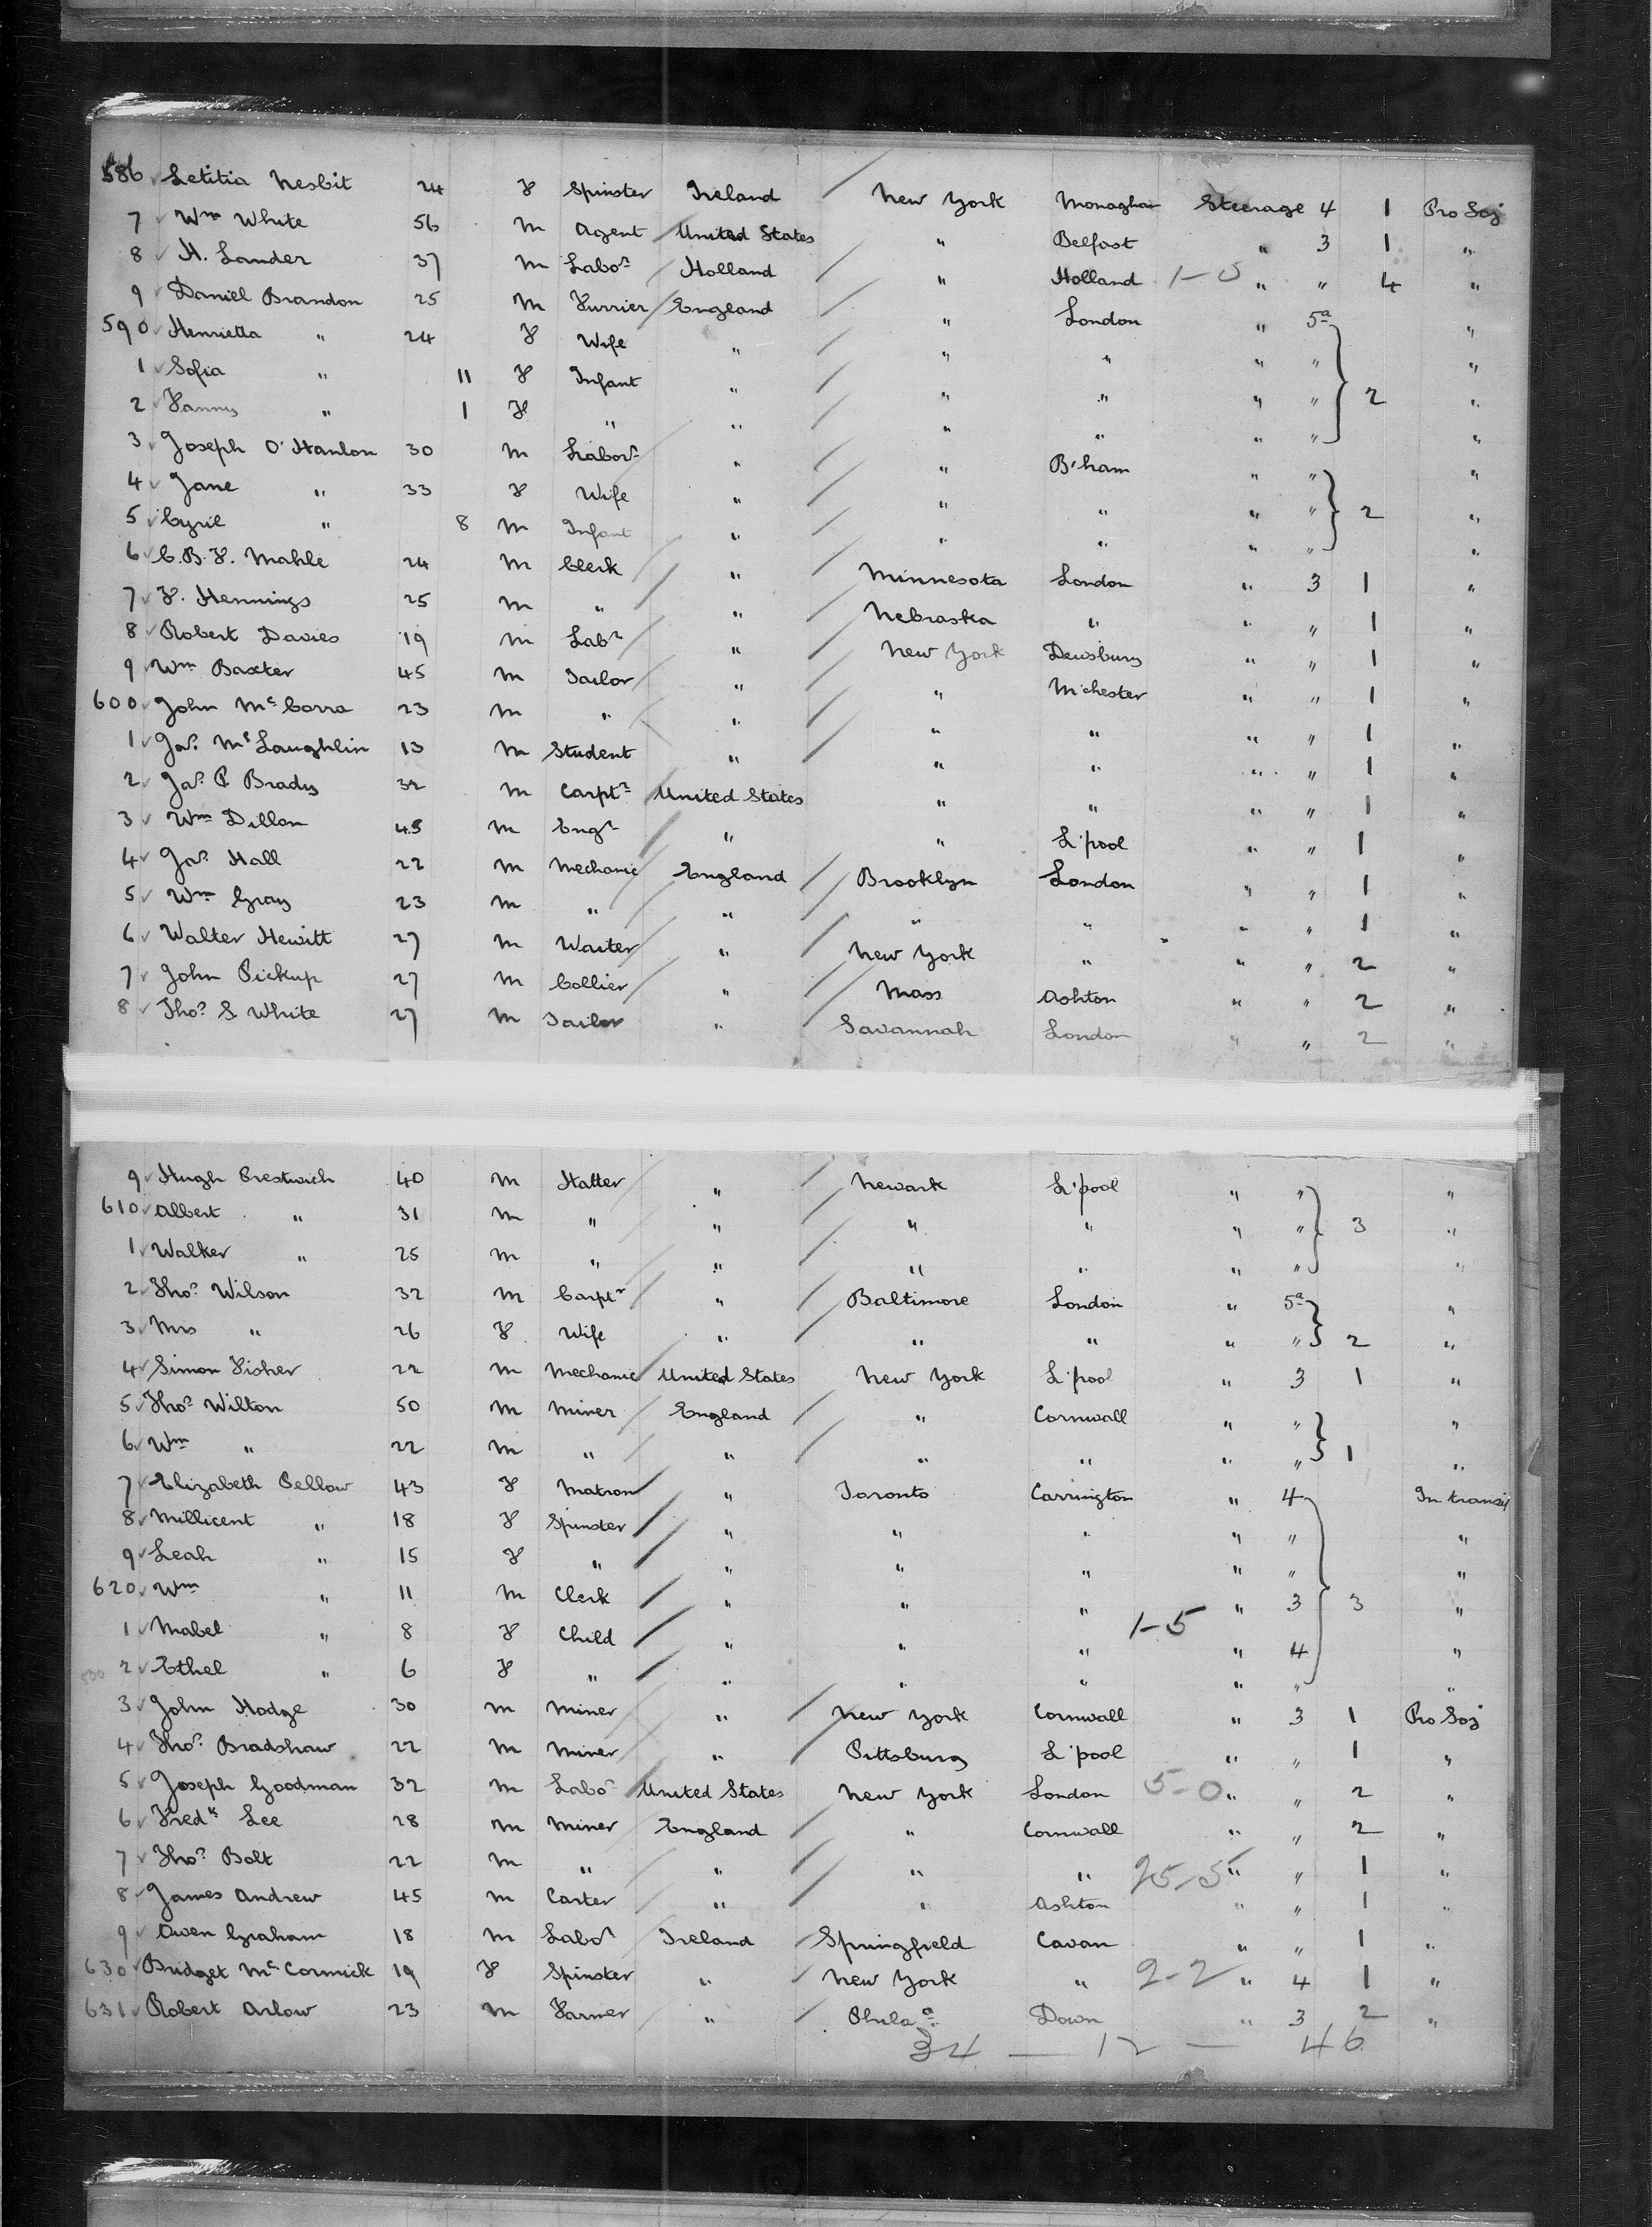 586 Letitia Nesbit 24 F Spinster Ireland New York Monaghan Steerage 4 1 Pro Soj
7 Wm White 56 M Agent United States " Belfast " 3 1 "
8 H. Lander 37 M Labor Holland " Holland 1-0 " " 4 "
9 Daniel Brandon 25 M Furrier England " London " 5a "
590 Henrietta " 24 F Wife " " " " " "
1 Sofia " 11 F Infant " " " " " 2 "
2 Fanny " 1 F " " " " " " "
3 Joseph O'Hanlon 30 M Labor " " B'ham " " "
4 Jane " 33 F Wife " " " " " 2 "
5 Cyril " 8 M Infant " " " " " "
6 C.B.F. Mahle 24 M Clerk " Minnesota London " 3 1 "
7 F. Hennings 25 M " " Nebraska " " " 1 "
8 Robert Davies 19 M Labr " New York Dewsbury " " 1 "
9 Wm Baxter 45 M Tailor " " M'chester " " 1 "
600 John McCorra 23 M " " " " " " 1 "
1 Jas. McLaughlin 13 M Student " " " " " 1 "
2 Jas. P Brady 32 M Carptr United States " " " " 1 "
3 Wm Dillon 45 M Engr " " L'pool " " 1 "
4 Jas. Hall 22 M Mechanic England Brooklyn London " " 1 "
5 Wm Gray 23 M " " " " " " 1 "
6 Walter Hewitt 27 M Waiter " New York " " " 2 "
7 John Pickup 27 M Collier " Mass Ashton " " 2 "
8 Thos. S White 27 M Tailor " Savannah London " " 2 "
9 Hugh Crestwich 40 M Hatter " Newark L'pool " " "
610 Albert " 31 M " " " " " " 3 "
1 Walker " 25 M " " " " " " "
2 Thos. Wilson 32 M Carptr " Baltimore London " 5a "
3 Mrs " 26 F Wife " " " " " 2 "
4 Simon Fisher 22 M Mechanic United States New York L'pool " 3 1 "
5 Thos. Wilton 50 M Miner England " Cornwall " " "
6 Wm " 22 M " " " " " " 1 "
7 Elizabeth Pellow 43 F Matron " Toronto Carrington " 4 In transit
8 Millicent " 18 F Spinster " " " " " "
9 Leah " 15 F " " " " " " "
620 Wm " 11 M Clerk " " " " 3 3 "
1 Mabel " 8 F Child " " " 1-5 " 4 "
2 Ethel " 6 F " " " " " " "
3 John Hodge 30 M Miner " New York Cornwall " 3 1 Pro Soj
4 Thos. Bradshaw 22 M Miner " Pittsburg L'pool " " 1 "
5 Joseph Goodman 32 M Labor United States New York London 5-0 " " 2 "
6 Fredk Lee 28 M Miner England " Cornwall " " 2 "
7 Thos. Bolt 22 M " " " " 25-5 " " 1 "
8 James Andrew 45 M Carter " " Ashton " " 1 "
9 Owen Graham 18 M Labor Ireland Springfield Cavan " " 1 "
630 Bridget McCormick 19 F Spinster " New York " 2-2 " 4 1 "
631 Robert Arlow 23 M Farmer " Phila a Down " 3 2 "
34 — 12 — 46